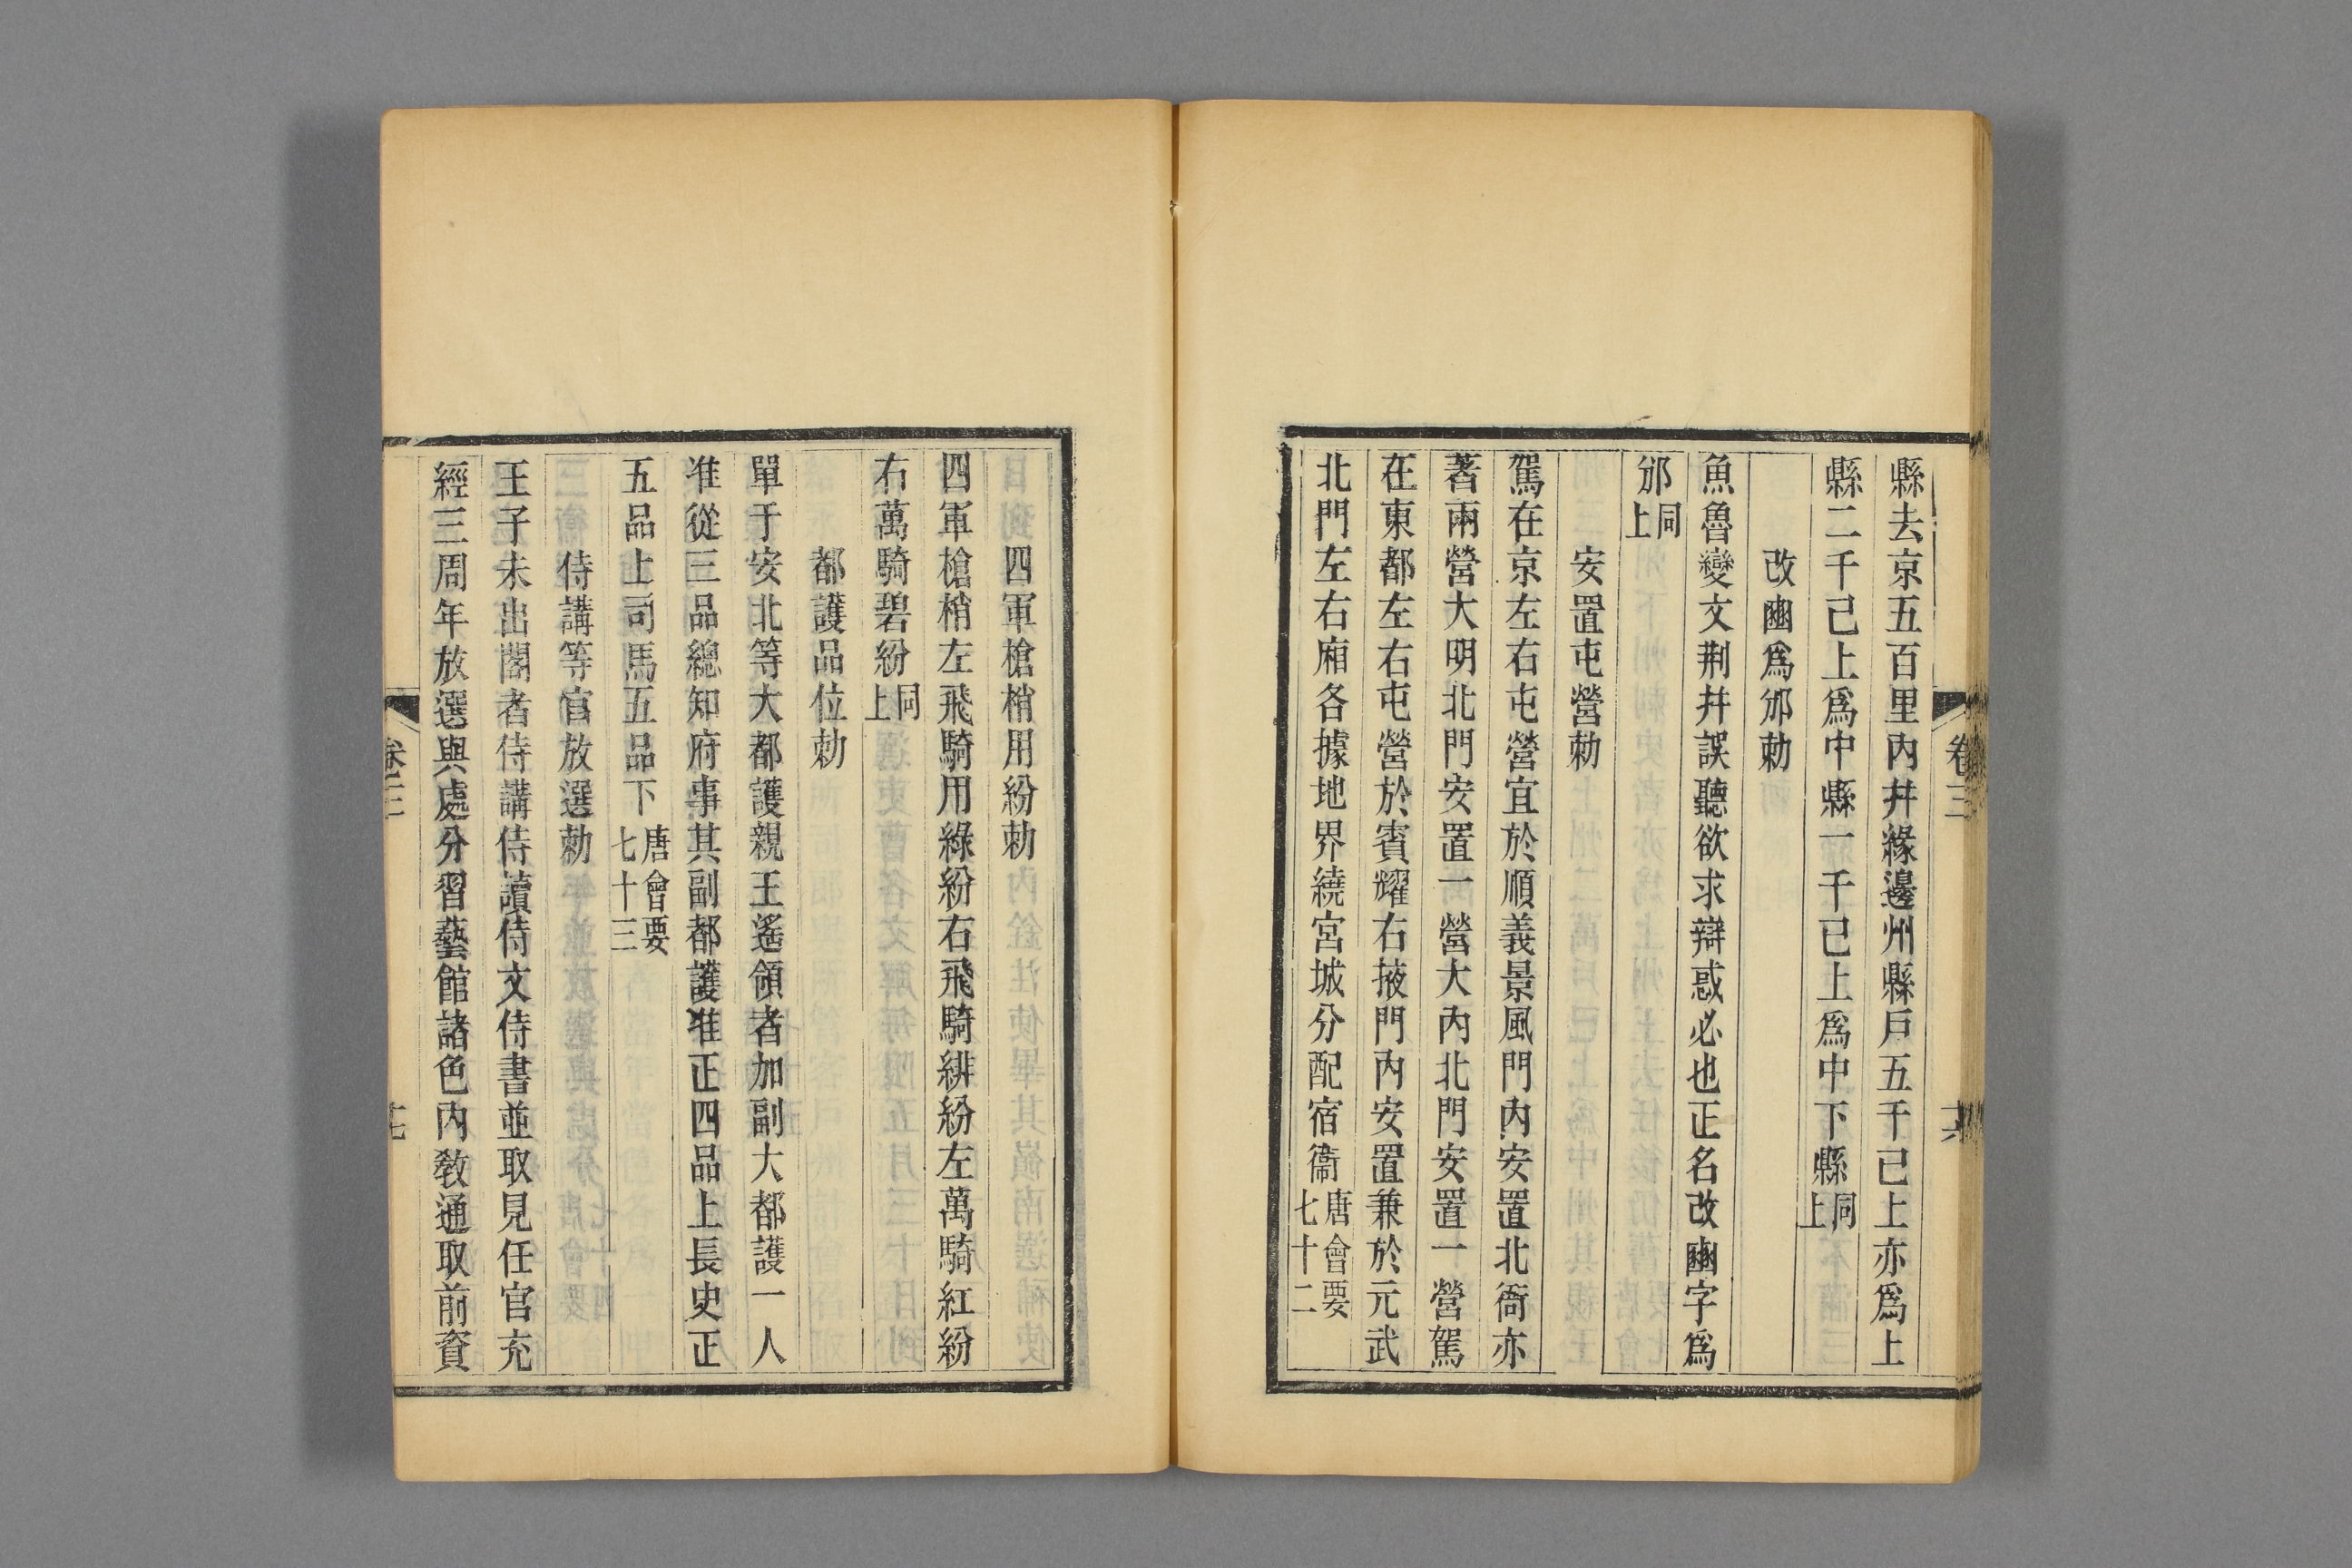 縣去京五百里內幷緣邊州縣戶五千已上亦爲上
縣二千己上爲中縣一千已上爲中下縣同上
改豳爲邠勅
魚魯變文荆幷誤聽欲求辯惑必也正名改豳字爲
邠同上
安置屯營勅
駕在京左右屯營宜於順義景風門內安置北衙亦
著兩營大明北門安置一營大內北門安置一營駕
在東都左右屯營於賓耀右掖門內安置兼於元武
北門左右廂各據地界繞宮城分配宿衞唐會要七十二
卷三
十六
四軍槍梢用紛勅
四軍槍梢左飛騎用綠紛右飛騎緋紛左萬騎紅紛
右萬騎碧紛同上
都護品位勅
單于安北等大都護親王遙領者加副大都護一人
准從三品總知府事其副都護准正四品上長史正
五品上司馬五品下唐會要七十三
侍講等官放選勅
王子未出閣者侍講侍讀侍文侍書並取見任官充
經三周年放選與處分習藝館諸色內敎通取前資
卷三
十七